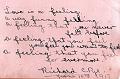 Love is a feeling
a very funny feeling
a feeling you have never
felt before
a feeling that you
yourself you want to feel
a feeling that
for evermore
Richard